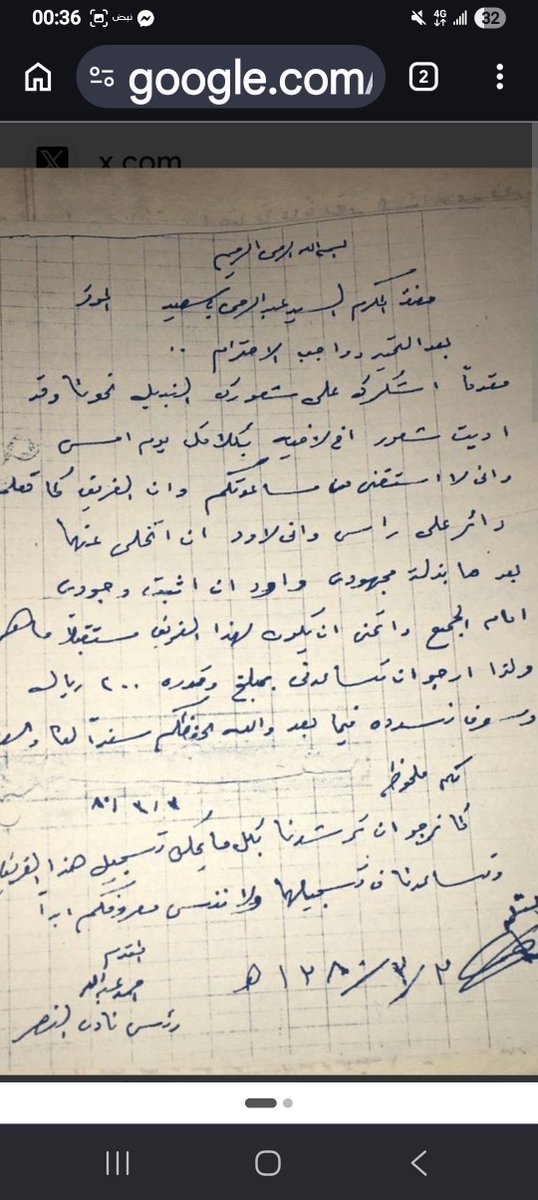 00:36
نبض
4G
32
google.com/
2
x.com
بسم الله الرحمن الرحيم
حضرة المكرم السيد عبدالرحمن بن سعيد الموقر
بعد التحية وواجب الاحترام ..
مقدماً اشكرك على شعورك النبيل نحونا وقد
اديت شعور بكلامك يوم امس
وانى لا استغنى من مساعدتكم وان الفريق كما
على راسى وانى لا اود ان اتخلى عنها
بعد ما بذلة مجهودى واود ان اثبت وجودى
امام الجميع واتمنى ان يكون لهذا الفريق مستقبلاً
ولذا ارجو ان تساعدنى بمبلغ وقدره ٢٠٠ ريال
وسوف نسدده فيما بعد والله يحفظكم سنداً لنا
ملحوظه
٨٠/٣/٣
كما نرجو ان ترشدنا بكل ما يمكن تسجيل هذا الفريق
وتساعدنا فى تسجيلها ولا ننسى معروفكم ابداً
١٣٨٠/٣/٣ هـ
المقدم
عبدالله
رئيس نادى النصر